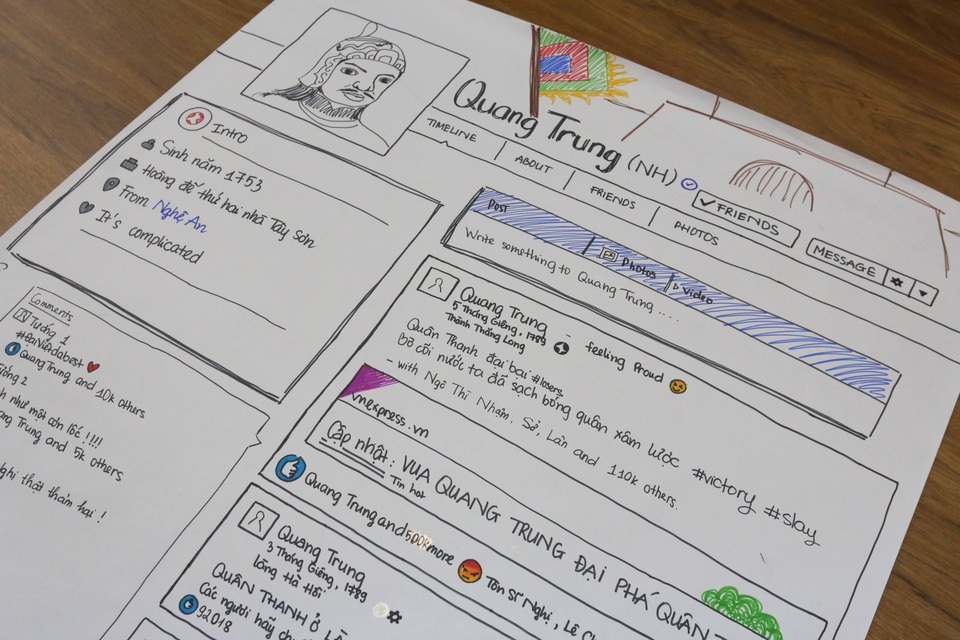 Quang Trung (NH)
TIMELINE
ABOUT
FRIENDS
PHOTOS
FRIENDS
MESSAGE
Intro
Sinh năm 1753
Hoàng đế thứ hai nhà Tây Sơn
From Nghệ An
It's complicated
Post
Photos
Video
Write something to Quang Trung ....
Quang Trung - feeling proud
5 Tháng Giêng, 1789
Thành Thăng Long
Quân Thanh đại bại #losers
Bờ cõi nước ta đã sạch bóng quân xâm lược #victory #slay
- with Ngô Thì Nhậm, Sở, Lân and 110k others.
vnexpress.vn
Cập nhật: VUA QUANG TRUNG ĐẠI PHÁ QUÂN T
Tin hot
Quang Trung and 500k more
Tôn Sĩ Nghị, Lê C
Quang Trung
3 Tháng Giêng, 1789
Làng Hà Hồi
QUÂN THANH Ở
Các người hãy
92018
Comments
Tướng 1
#ĐạiViệtdabest
Quang Trung and 10k others
ớng 2
nh như một cơn lốc !!!!
ang Trung and 5k others
Nghị thật thảm hại !